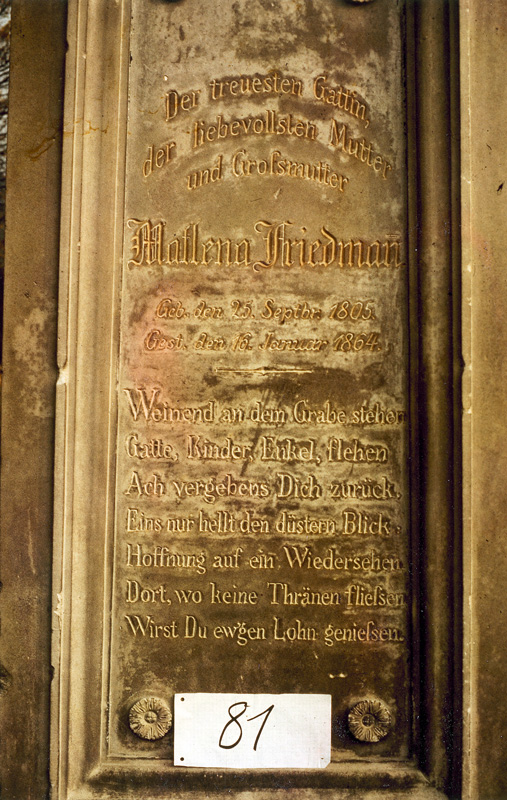 Der treuesten Gattin,
der liebevollsten Mutter
und Großmutter
Matlena Friedmañ
Geb. den 25. Septbr. 1805.
Gest. den 16. Januar 1864.
Weinend an dem Grabe stehen
Gatte, Kinder, Enkel, flehen
Ach vergebens, Dich zurück,
Eins nur hellt den düstern Blick:
Hoffnung auf ein Wiedersehen.
Dort, wo keine Thränen fliefsen
Wirst Du ew'gen Lohn geniefsen.
81